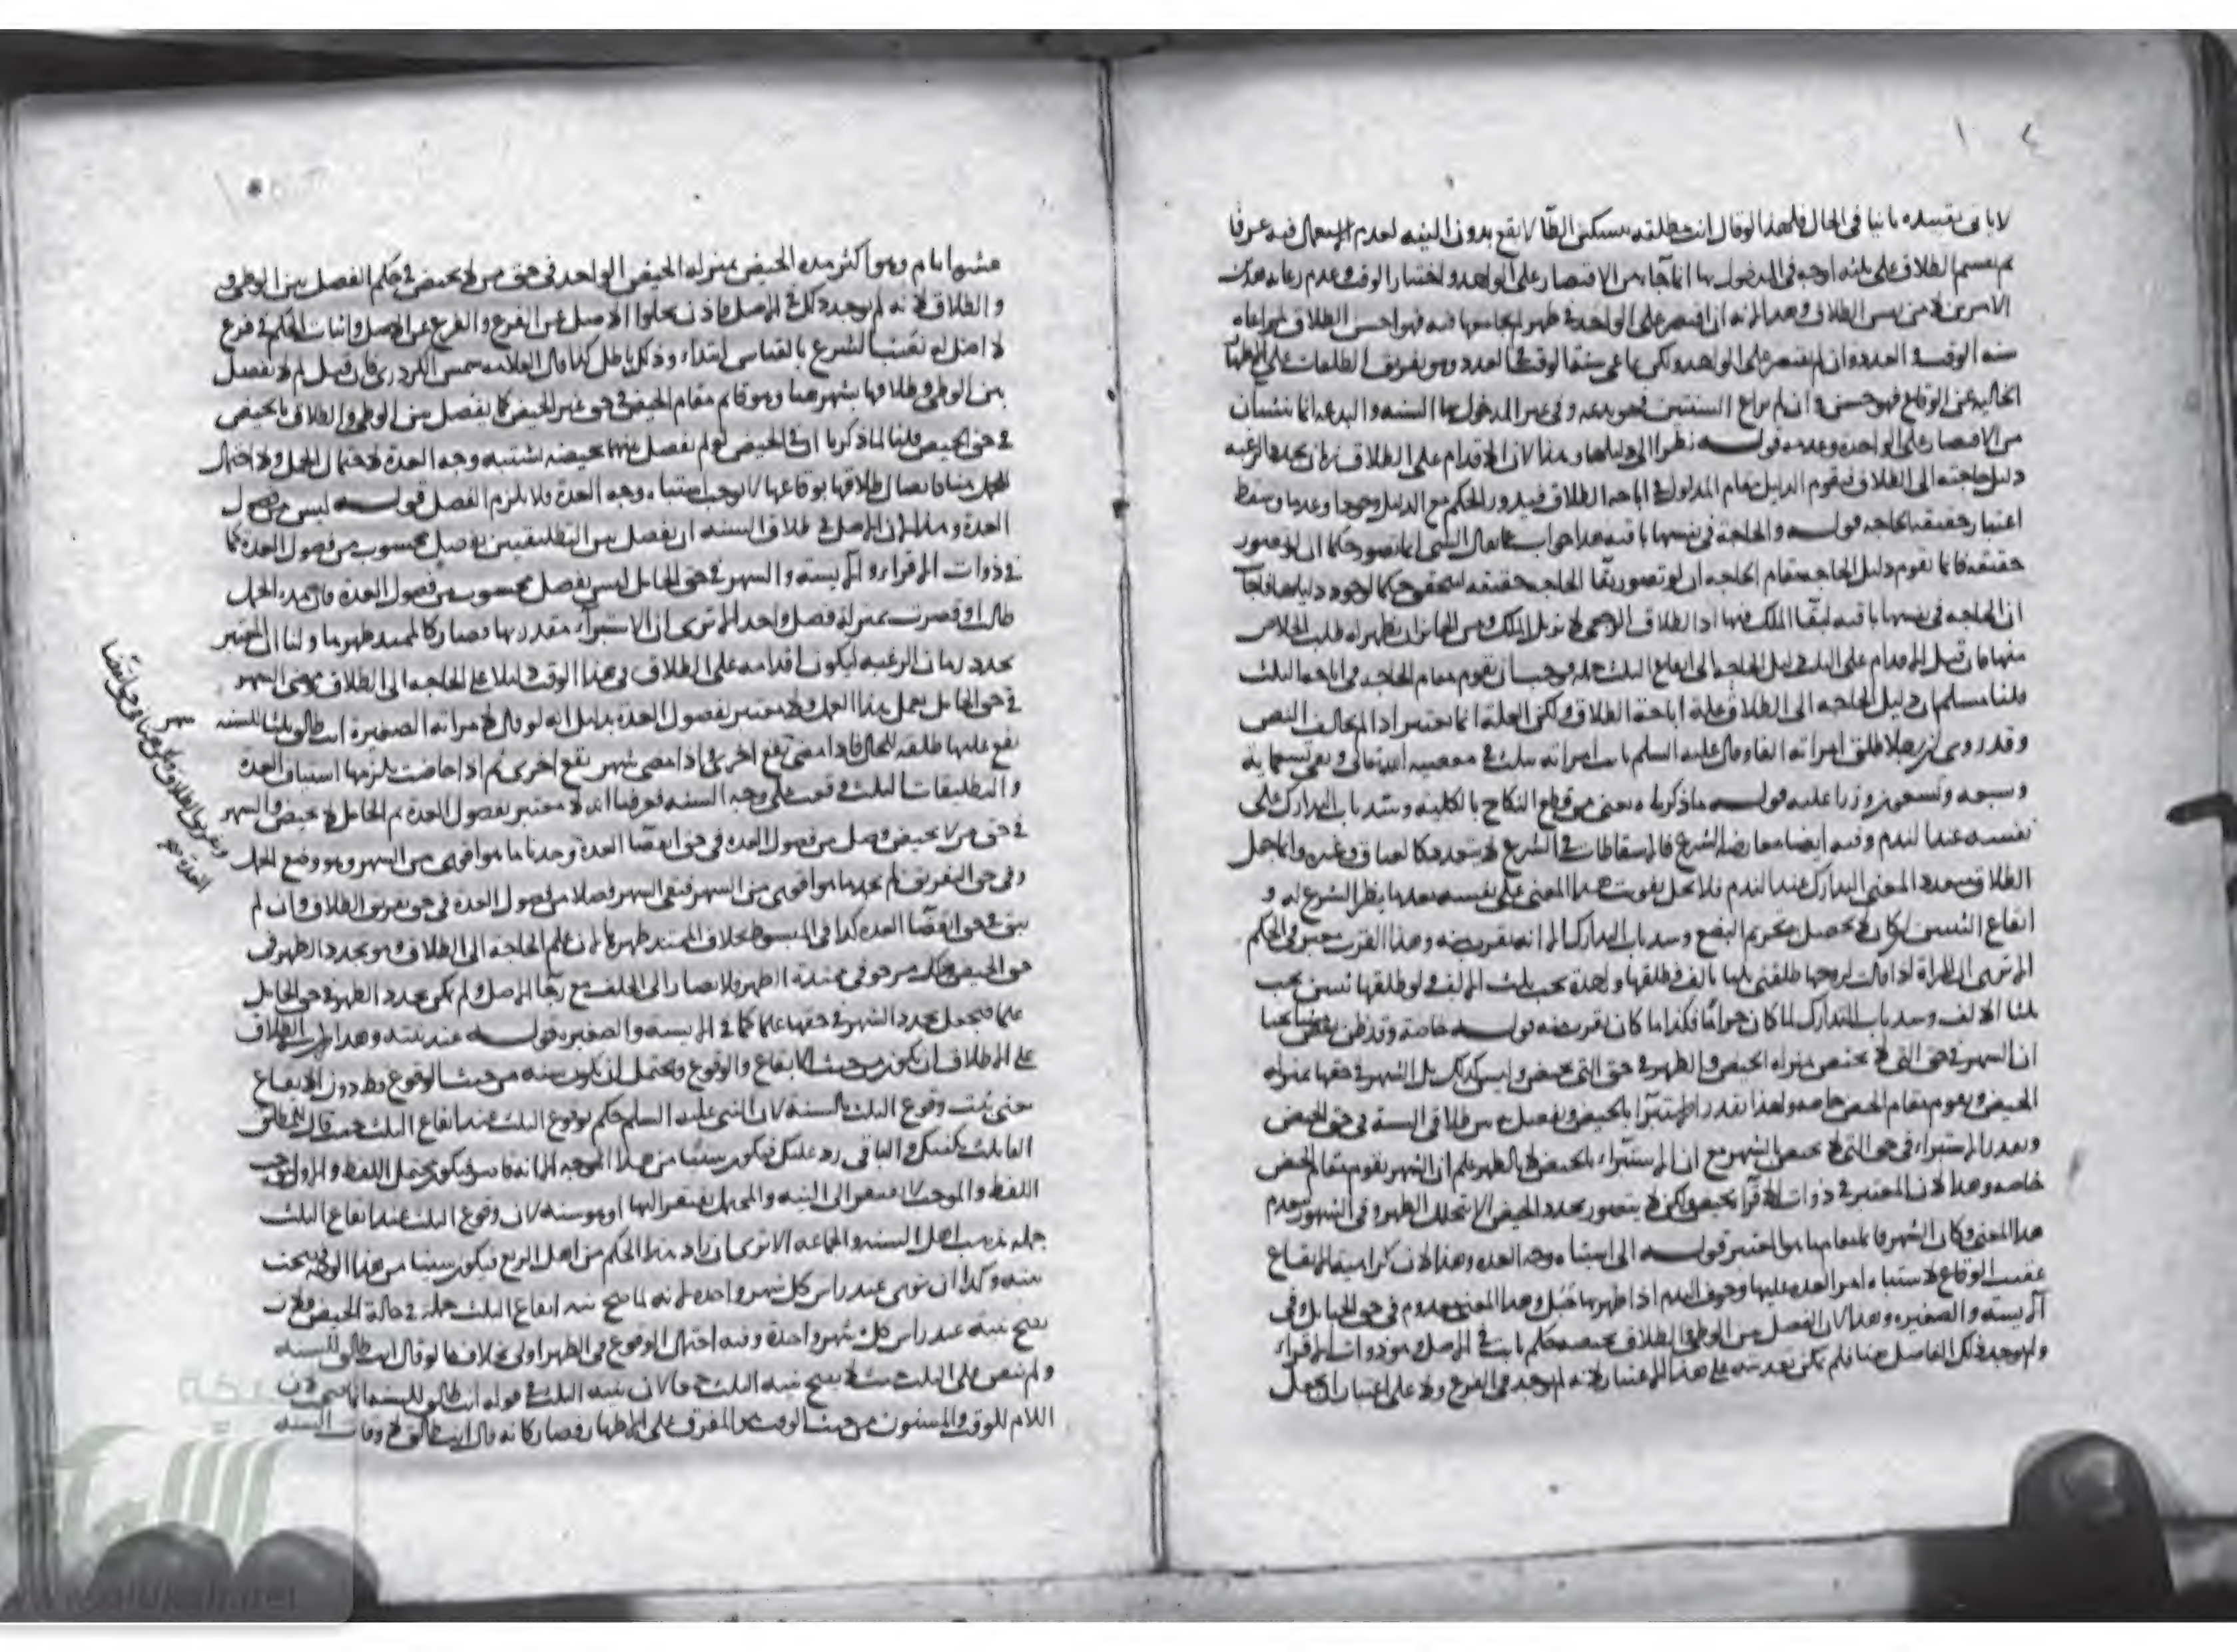 لا يأتي تقييده ثانيا في الحال فلهذا لو قال انت مطلقة بتسكين الطاء لا يقع بدون النية لعدم الاستعمال فيه عرفا
الامرين وهذا لانه ان اقتصر على الواحدة في طهر لم يجامعها فيه فهو احسن الطلاق لمراعاة
سنة الوقت والعدد وان لم يقتصر على الواحدة ولكن راعى سنة الوقت والعدد وهو تفريق الطلقات على الاطهار
الخالية عن الوقاع فهو حسن وان لم يراع السنتين فهو بدعة وفي غير المدخول بها السنة والبدعة انما ينشئان
من الاقتصار على الواحدة وعدمه قوله نظرا الى دليلها وهذا لان الاقدام على الطلاق زمان تجدد الرغبة
دليل حاجته الى الطلاق فيقوم الدليل مقام المدلول في اباحة الطلاق فيدور الحكم مع الدليل وجودا وعدما وسقط
اعتبار حقيقة الحاجة قوله والحاجة في نفسها باقية هذا جواب عما يقال الشي انما يتصور حكما ان لو تصور
حقيقة فانما يقوم دليل الحاجة مقام الحاجة ان لو تصور بقا الحاجة حقيقة ليتحقق حكما لوجود دليلها فاجاب
ان الحاجة في نفسها باقية لبقا الملك فيها اذ الطلاق الرجعي لا يزيل الملك ومن الجائز ان يظهر له طلب الخلاص
منها فان قيل الاقدام على الثلث دليل الحاجة الى ايقاع الثلث جملة فوجب ان يقوم مقام الحاجة في اباحة الثلث
قلنا مسلم ان دليل الحاجة الى الطلاق علة اباحة الطلاق ولكن العلة انما تعتبر اذا لم يخالف النص
وقد روي ان رجلا طلق امراته الفا وقال عليه السلم بانت امراته بثلث في معصية الله تعالى وبقي تسعماية
وسبعة وتسعون وزرا عليه قوله ما ذكرناه يعني من قطع النكاح بالكلية وسد باب التدارك على
نفسه عند الندم وفيه ايضا معارضة الشرع فالاسقاطات في الشرع لا تتعدد كالعتاق وغيره وانما جعل
الطلاق متعددا لمعنى التدارك عند الندم فلا يحل تفويت هذا المعنى على نفسه بعد ما نظر الشرع له و
ايقاع الثنتين وان كان لا يحصل به تحريم البضع وسد باب التدارك الا انه يقرب منه وهذا القرب معتبر في الحكم
الا ترى ان المراة اذا قالت لزوجها طلقني ثلثا بالف فطلقها واحدة يجب ثلث الالف ولو طلقها ثنتين يجب
ثلثا الالف وسد باب التدارك لما كان حراما فكذا ما كان يقرب منه قوله خاصة وقد ظن بعض اصحابنا
ان الشهر في حق التي لا تحيض بمنزلة الحيض والطهر في حق التي تحيض وليس كذلك بل الشهر في حقها بمنزلة
الحيض ويقوم مقام الحيض خاصة ولهذا يقدر الاستبراء بالحيض ويفصل بين طلاقي السنة في حق الحيض
ويقدر الاستبراء في حق التي لا تحيض بالشهر مع ان الاستبراء بالحيض لا بالطهر علم ان الشهر يقوم مقام الحيض
خاصة وهذا لان المعتبر في ذوات الاقراء الحيض ولكن لا يتصور تجدد الحيض الا بتخلل الطهر وفي الشهور ينعدم
هذا المعنى وكان الشهر قائما مقام ما هو المعتبر قوله الى اشتباه وجه العدة وهذا لان كراهية الايقاع
عقيب الوقاع لاشتباه امر العدة عليها وخوف الندم اذا ظهر بها حبل وهذا المعنى معدوم في حق الحامل وفي
الايسة والصغيرة وهذا لان الفصل بين الوطي والطلاق بحيضة حكم ثابت في الاصل وهو ذوات الاقراء
ولم يوجد ذلك الفاصل هنا فلم يمكن تعديته على هذا الاعتبار لانه لم يوجد في الفرع ولا على اعتبار ان يجعل
عشرة ايام وهو اكثر مدة الحيض بمنزلة الحيض الواحد في حق من لا تحيض في حكم الفصل بين الوطي و
والطلاق لانه لم يوجد ذلك في الاصل واذن يخلوا الاصل عن الفرع والفرع عن الاصل واثبات الحكم في فرع
لا اصل له نصب الشرع بالقياس ابتداء وذلك باطل كذا قال العلامة شمس الكردري فان قيل لم لا يفصل
بين الوطي وطلاقها بشهر هنا وهو قايم مقام الحيض في حق غير الحيض كما يفصل بين الوطي والطلاق بالحيض
في حق الحيض قلنا لما ذكرنا ان في الحيض لو لم يفصل بينهما بحيضة يشتبه وجه العدة لاحتمال الحبل ولا احتمال
للحبل هنا فايصال طلاقها بوقاعها لا يوجب اشتباه وجه العدة ولا يلزم الفصل قوله ليس من فصول
العدة وهذا لان الاصل في طلاق السنة ان يفصل بين التطليقتين بفصل محسوب من فصول العدة كما
في ذوات الاقراء والايسة والشهر في حق الحامل ليس بفصل محسوب من فصول العدة فان مدة الحبل
طالت او قصرت بمنزلة فصل واحد الا ترى ان الاستبراء مقدر بها فصار كالممتد طهرها ولنا ان المعتبر
تجدد زمان الرغبة ليكون اقدامه على الطلاق في هذا الوقت دليلا على الحاجة الى الطلاق ومضي الشهر
في حق الحامل يعمل هذا العمل ولا معتبر بفصول العدة بدليل انه لو قال لامراته الصغيرة انت طالق ثلثا للسنة
يقع عليها طلقة للحال فاذا مضى شهر تقع اخرى واذا مضى شهر تقع اخرى ثم اذا حاضت يلزمها استيناف العدة
والتطليقات الثلث وقعت على وجه السنة فعرفنا انه لا معتبر بفصول العدة ثم الحامل لا تحيض والشهر
في حق من لا تحيض فصل من فصول العدة في حق انقضا العدة وجدنا ما هو اقوى من الشهر وهو وضع الحمل
وفي حق التفريق لم نجد ما هو اقوى من الشهر فبقي الشهر فصلا من فصول العدة في حق تفريق الطلاق وان لم
يبق في حق انقضا العدة كذا في المبسوط بخلاف الممتد طهرها لان علم الحاجة الى الطلاق وهو تجدد الطهر في
حق الحيض وذلك مرجو في ممتدة الطهر ولا يصار الى الخلف مع رجا الاصل ولم يكن تجدد الطهر في حق الحامل
علما فيجعل تجدد الشهر في حقها علما كما في الايسة والصغيرة قوله عند نيته وهذا لان الطلاق
على الاطلاق ان يكون من حيث الايقاع والوقوع ويحتمل ان يكون سنة من حيث الوقوع فقط دون الايقاع
يعني ثبت وقوع الثلث بالسنة لان النبي عليه السلم حكم بوقوع الثلث عند ايقاع الثلث حيث قال
اللفظ والموجب لا يفتقر الى النية والمحتمل يفتقر اليها او هو سنة لان وقوع الثلث عند ايقاع الثلث
جملة مذهب اهل السنة والجماعة الا ترى ان
منه وكذا ان نوى عند راس كل شهر واحدة لانه لما صح نية ايقاع الثلث جملة في حالة الحيض فلان
يصح نيته عند راس كل شهر واحدة وفيه احتمال الوقوع في الطهر اولى بخلاف ما لو قال انت طالق للسنة
ولم ينص على الثلث حيث لا يصح نية الثلث جملة لان نية الثلث في قوله انت طالق للسنة انما صحت لان
اللام للوقت والمسنون من حيث الوقت هو المفرق على الاطهار فصار كانه قال انت طالق لاوقات السنة